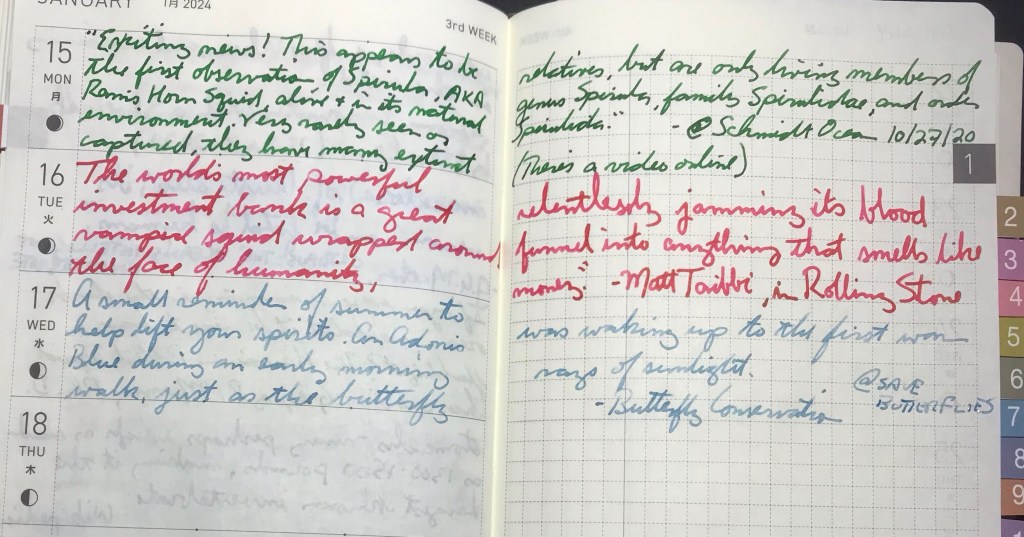 JANUARY 1月 2024
3rd WEEK
15
MON
月
"Exciting news! This appears to be
the first observation of Spirula, AKA
Rams Horn Squid, alive + in its natural
environment. Very rarely seen or
captured, they have many extinct
16
TUE
火
The worlds most powerful
investment bank is a great
vampire squid wrapped around
the face of humanity,
17
WED
水
A small reminder of summer to
help lift your spirits. An Adonis
Blue during an early morning
walk, just as the butterfly
18
THU
木
relatives, but are only living members of
genus Spirula, family Spirulidae, and order
Spirulida." - @SchmidtOcean 10/27/20
(There's a video online)
relentlessly jamming its blood
funnel into anything that smells like
money." - Matt Taibbi, in Rolling Stone
was waking up to the first warm
rays of sunlight.
@SAVE
BUTTERFLIES
- Butterfly Conservation
1
2
3
4
5
6
7
8
9